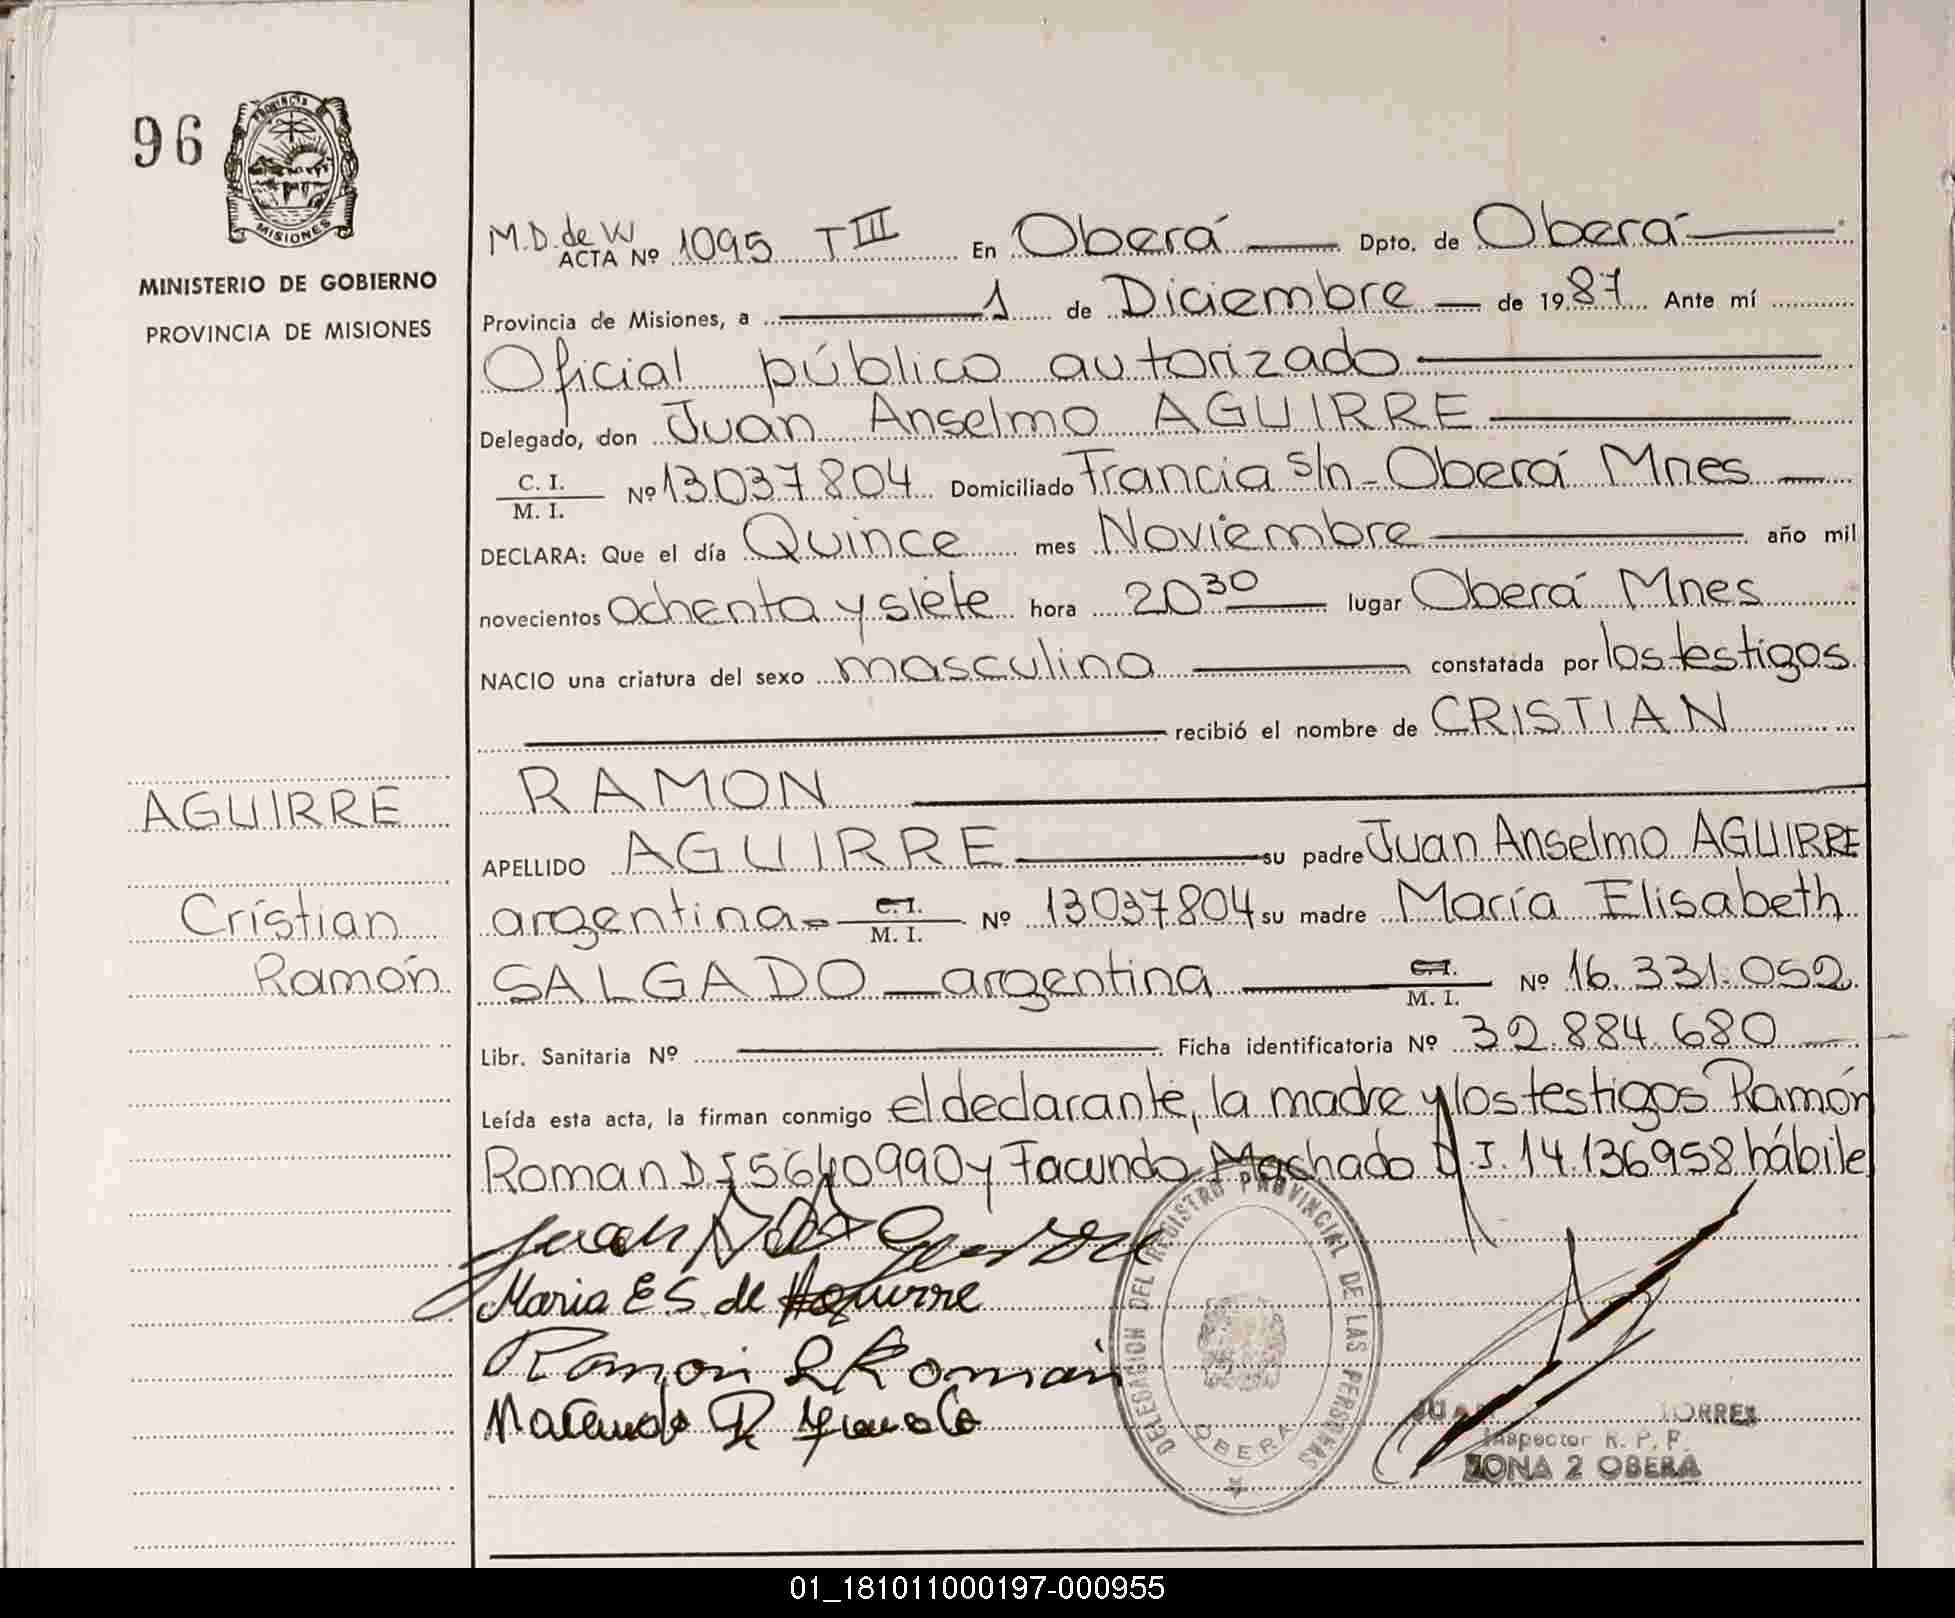 96
PROVINCIA DE
MISIONES
MINISTERIO DE GOBIERNO
PROVINCIA DE MISIONES
AGUIRRE
Cristian
Ramón
M.D. de W
ACTA Nº 1095 T III En Oberá Dpto. de Oberá
Provincia de Misiones, a 1 de Diciembre de 1987 Ante mí
Oficial público autorizado
Delegado, don Juan Anselmo AGUIRRE
C. I.
M. I. Nº 13037804 Domiciliado Francia s/n - Oberá Mnes
DECLARA: Que el día Quince mes Noviembre año mil
novecientos Ochenta y siete hora 20 30 lugar Oberá Mnes
NACIO una criatura del sexo masculino constatada por los testigos
recibió el nombre de CRISTIAN
RAMON
APELLIDO AGUIRRE su padre Juan Anselmo AGUIRRE
argentina - C.I. M. I. Nº 13037804 su madre María Elisabeth
SALGADO argentina C.I. M. I. Nº 16.331.052
Libr. Sanitaria Nº Ficha identificatoria Nº 32.884.680
Leída esta acta, la firman conmigo el declarante, la madre y los testigos Ramón
Roman D I 5640990 y Facundo Machado D.I. 14.136958 hábile
Juan
Maria E S de Aguirre
Ramon R Roman
DELEGACION DEL REGISTRO PROVINCIAL DE LAS PERSONAS
OBERA
JUAN TORRES
Inspector R. P. P.
ZONA 2 OBERA
01_181011000197-000955